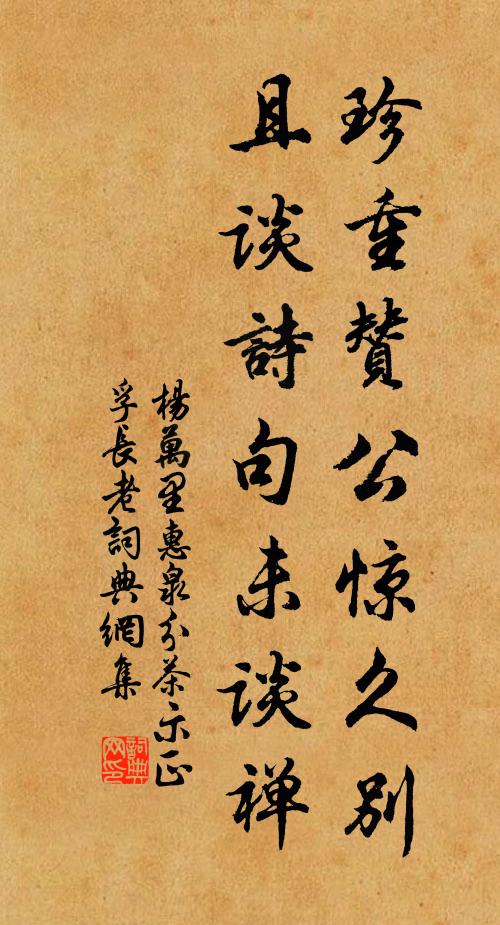 珍重赞公惊久别
且谈詩句未谈禅
楊萬里惠泉分茶示正
孚長老詞典網集
詞典
网印